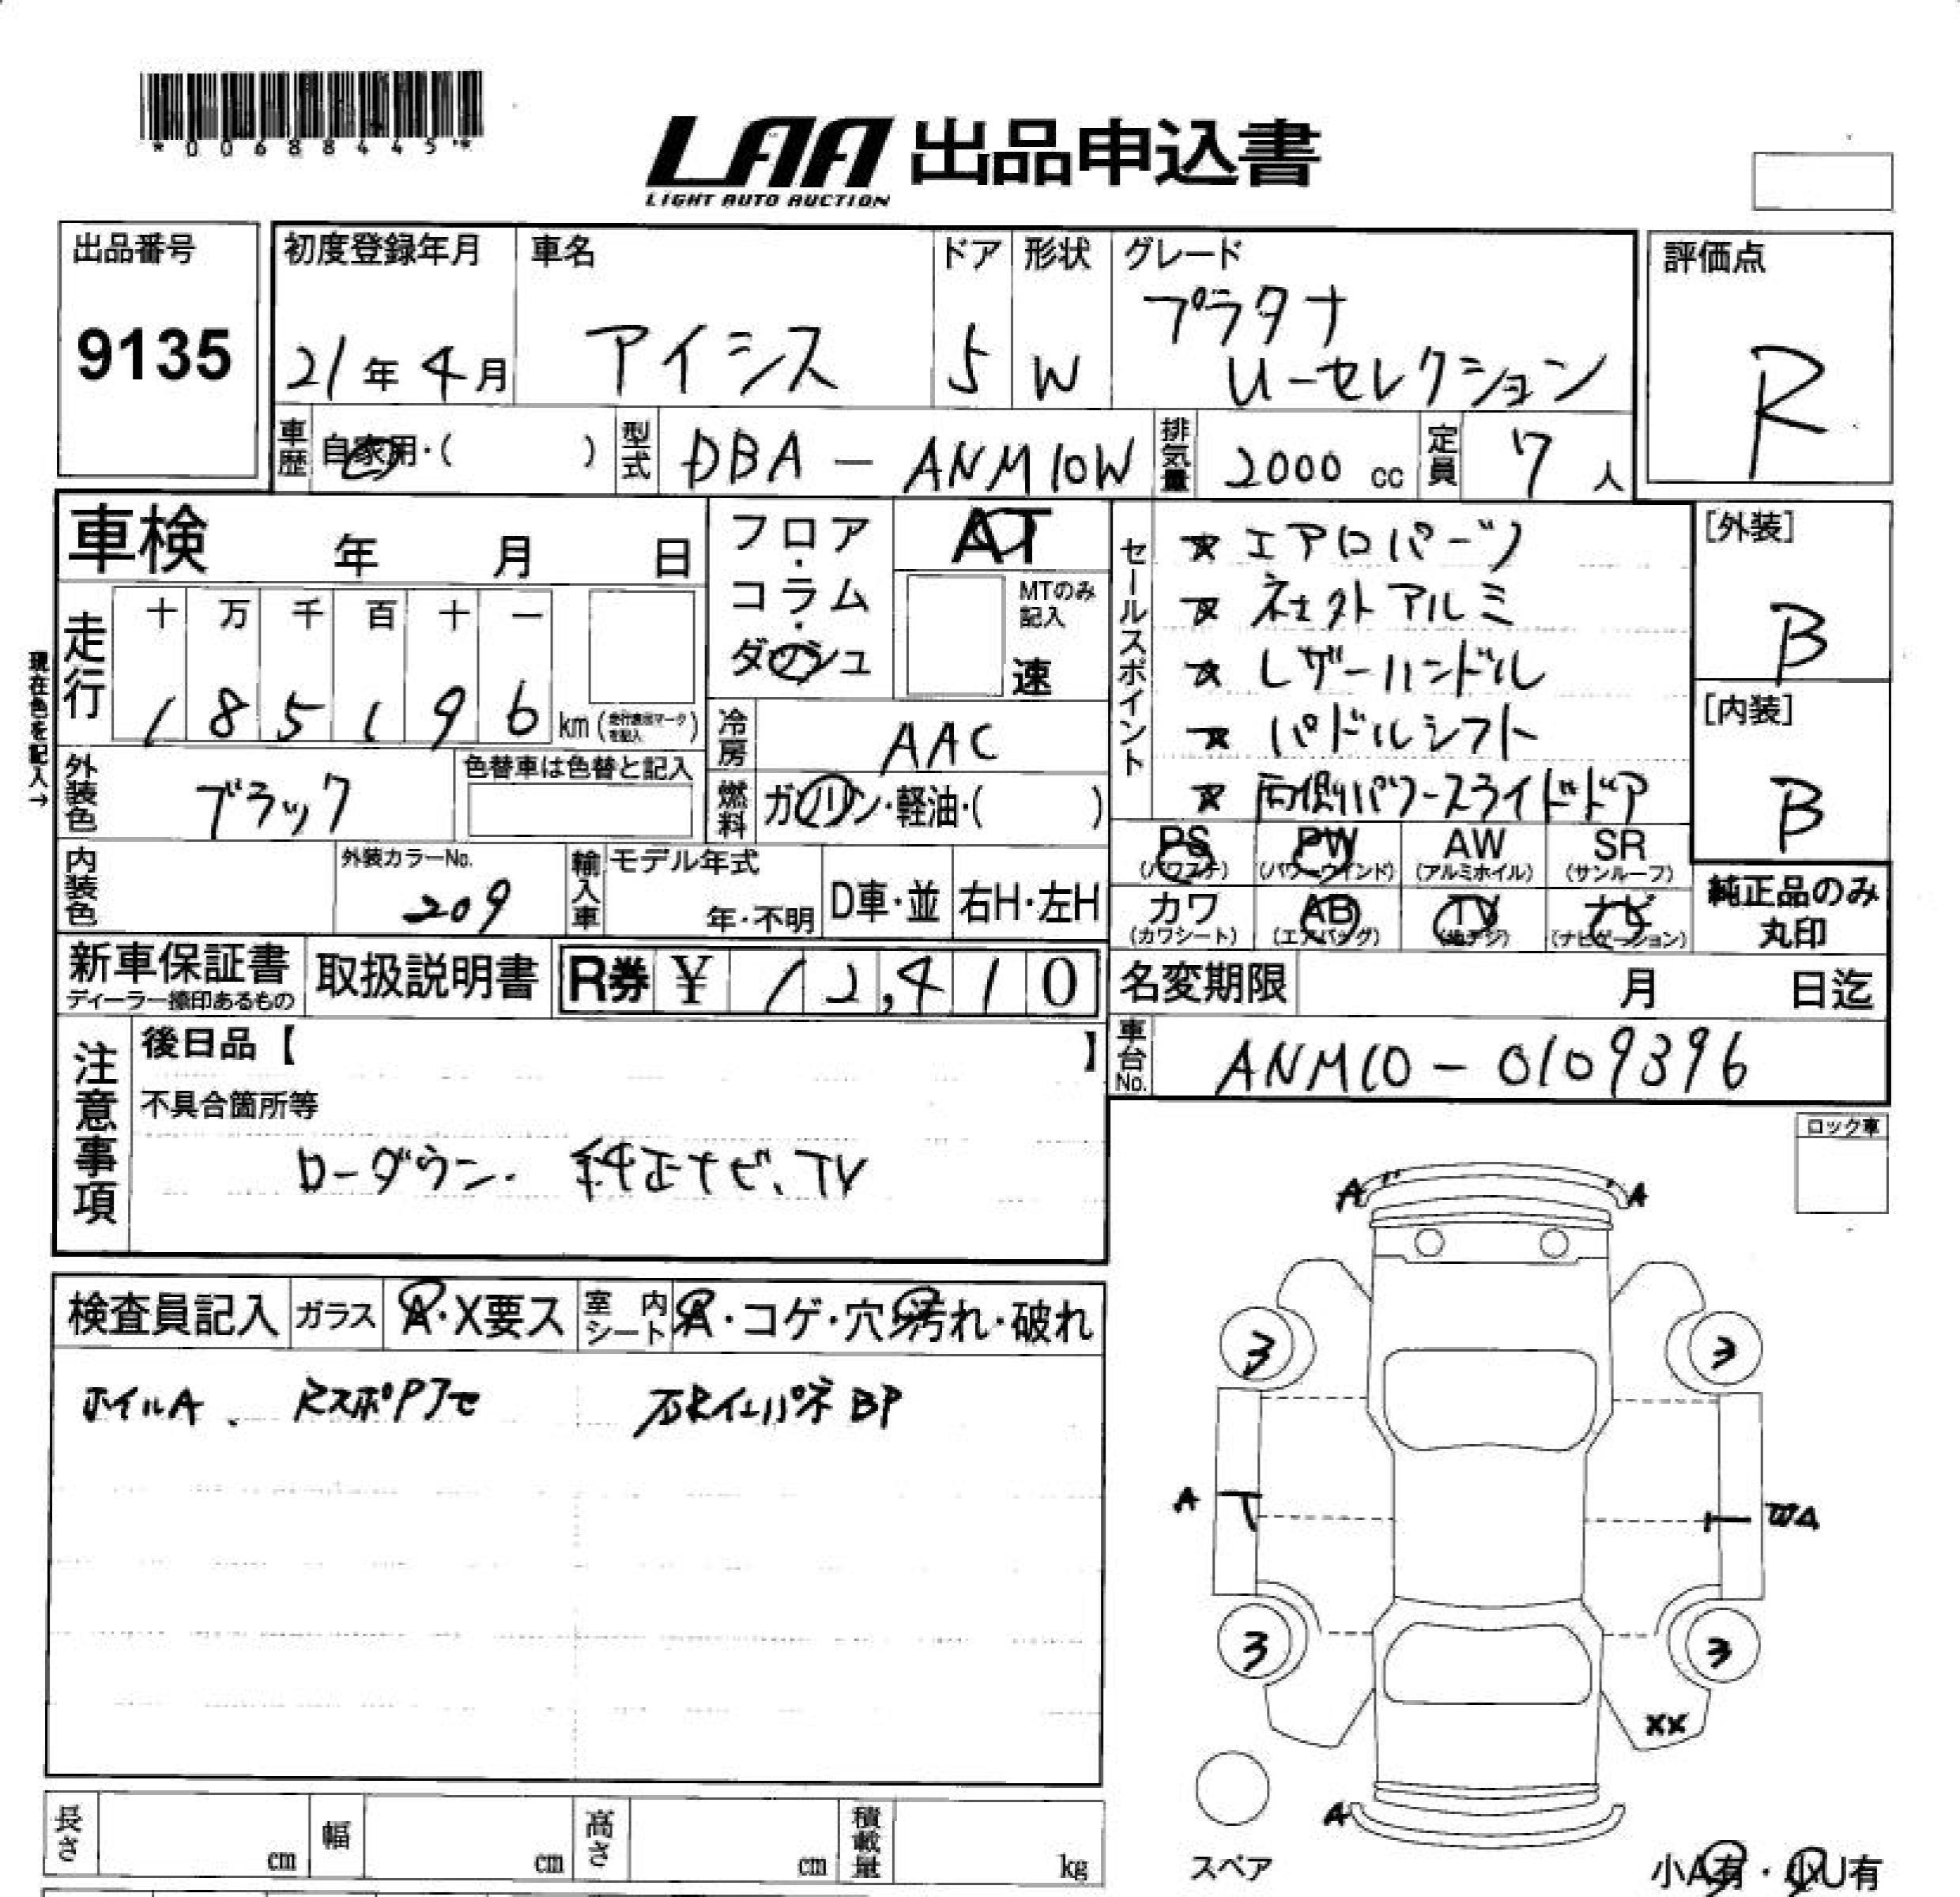 *00688445*
LAA 出品申込書
LIGHT AUTO AUCTION
出品番号
9135
初度登録年月
21年4月
車名
アイシス
ドア
5
形状
W
グレード
プラタナ
U-セレクション
評価点
R
車歴 自家用・( )
型式 DBA - ANM10W
排気量 2000 cc
定員 7 人
車検 年 月 日
フロア・コラム・ダッシュ
AT
MTのみ記入
速
セールスポイント
★ エアロパーツ
★ 社外アルミ
★ レザーハンドル
★ パドルシフト
★ 両側パワースライドドア
[外装]
B
[内装]
B
現在色を記入→
走行
十 万 千 百 十 一
1 8 5 1 9 6 km (走行表示マークを記入)
冷房 AAC
外装色 ブラック
色替車は色替と記入
燃料 ガソリン・軽油・( )
内装色
外装カラーNo.
209
輸入車
モデル年式
年・不明
D車・並
右H・左H
PS (パワステ)
PW (パワーウインド)
AW (アルミホイル)
SR (サンルーフ)
カワ (カワシート)
AB (エアバッグ)
TV (地デジ)
ナビ (ナビゲーション)
純正品のみ
丸印
新車保証書
ディーラー捺印あるもの
取扱説明書
R券 ¥ 12,410
名変期限 月 日迄
車台No. ANM10-0109396
注意事項
後日品【 】
不具合箇所等
ローダウン. 純正ナビ、TV
ロック車
検査員記入
ガラス A・X要ス
室内シート A・コゲ・穴・汚れ・破れ
ホイルA.
BP
A
A
3
3
A
3
3
XX
A
スペア
小A有・小U有
長さ cm
幅 cm
高さ cm
積載量 kg